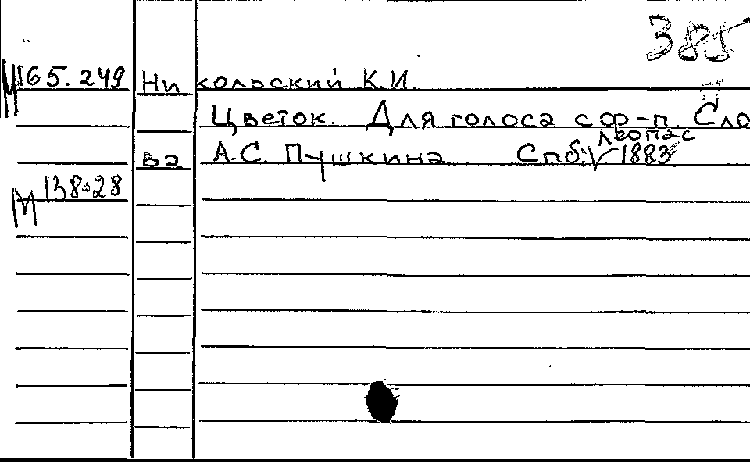 385
М165.249 Никольский К.И.
Цветок. Для голоса с ф-п. Сло
ва А.С. Пушкина Спб., Леопас 1883
М138.28